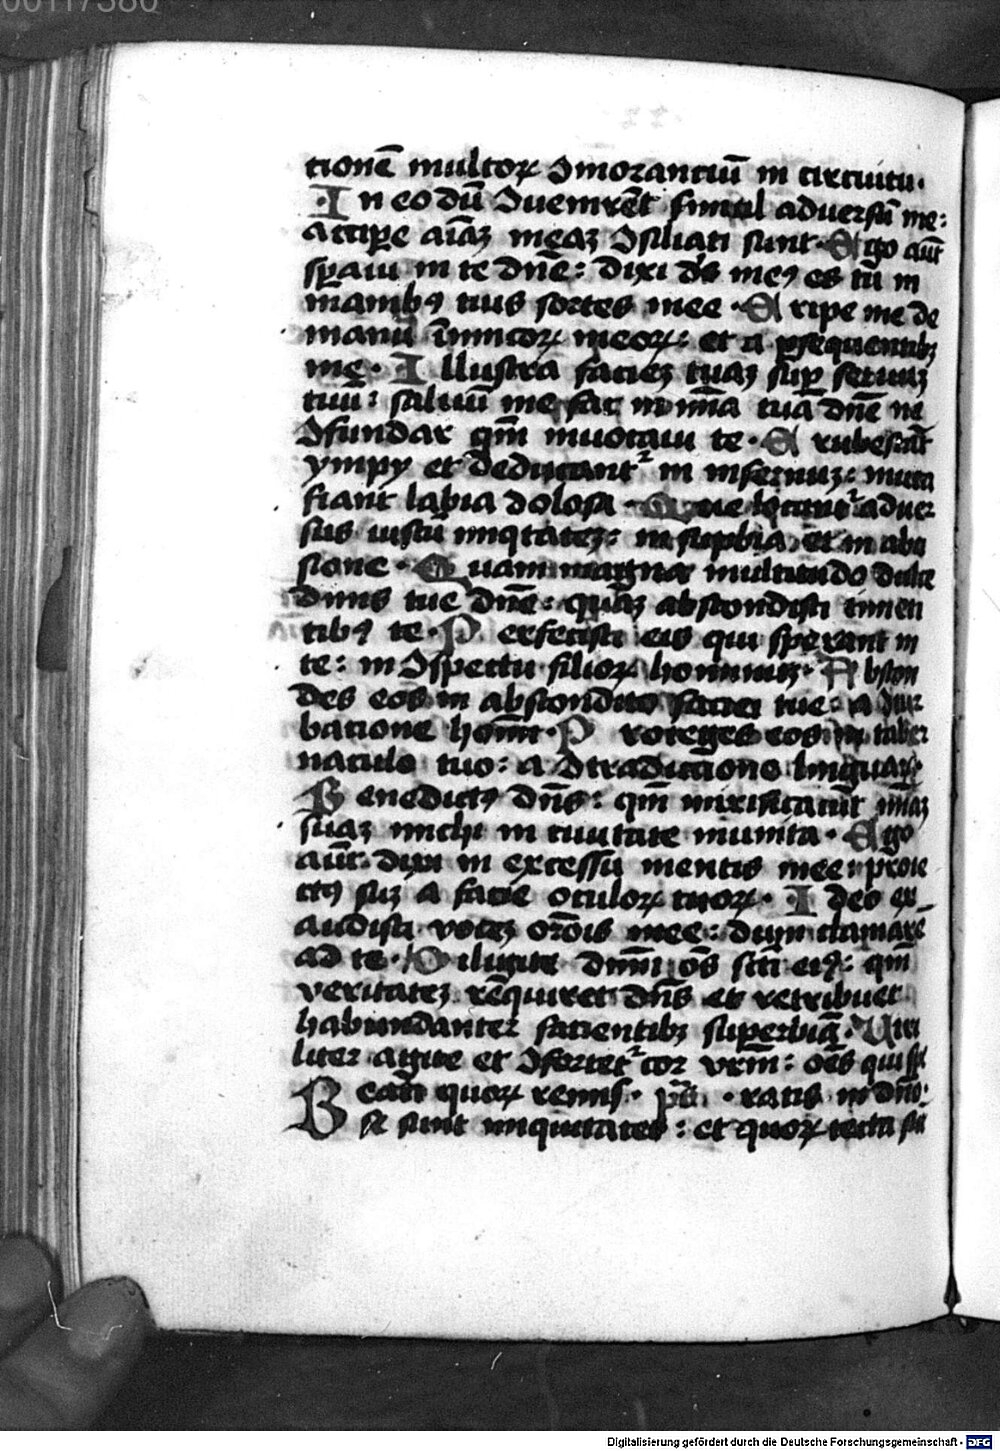 00117380
tionē multoꝝ ꝯmorantiū in circuitu.
In eo dū ꝯuenirēt simul adversū me:
accipe͛ aīaꝫ meaꝫ ꝯsiliati sunt. Ego aūt
spaui in te dn̄e: dixi ds̄ meꝰ es tū in
manibꝰ tuis sortes mee. Eripe me de
manū īimicoꝝ meoꝝ: et a ꝑsequentibꝫ
me. Illustra facieꝫ tuaꝫ sup̄ seruuꝫ
tuū: saluū me fac in mīa tuā dn̄e ne
ꝯfundar qm̄ inuocaui te. Erubescāt
ympy et deducant᷑ in infernuꝫ: muta
fiant labia dolosa. Que locunt᷑ aduer
sus iustū iniqtateꝫ: in supbia et in abu
sione. Quam magna multitudo dulce
dinis tue dn̄e: quaꝫ abscondisti timen
tibꝰ te. Perfecisti eis qui sperant in
te: in ꝯspectu filioꝝ hominuꝫ. Abscon
des eos in abscondito faciei tue: a ꝯtur
batione hoīm. Proteges eos in taber
naculo tuo: a ꝯtradictione linguaꝝ.
Benedictꝰ dn̄s: qm̄ mirificauit mīaꝫ
suaꝫ michi in ciuitate munita. Ego
aūt dixi in excessu mentis mee: proie
ctꝰ suꝫ a facie oculoꝝ tuoꝝ. Ideo ex
audisti voceꝫ orōis mee: dum clamarē
ad te. Diligite dnm̄ oēs scti eiꝰ: qm̄
veritateꝫ requiret dn̄s et retribuet
habundanter facientibꝫ superbiā. Viri
liter agite et ꝯfortet᷑ cor vrm̄: oēs qui spe
Beati quoꝝ remis. ps̄ . ratis in dn̄o:
se sunt iniquitates: et quoꝝ tecta sū
Digitalisierung gefördert durch die Deutsche Forschungsgemeinschaft - DFG